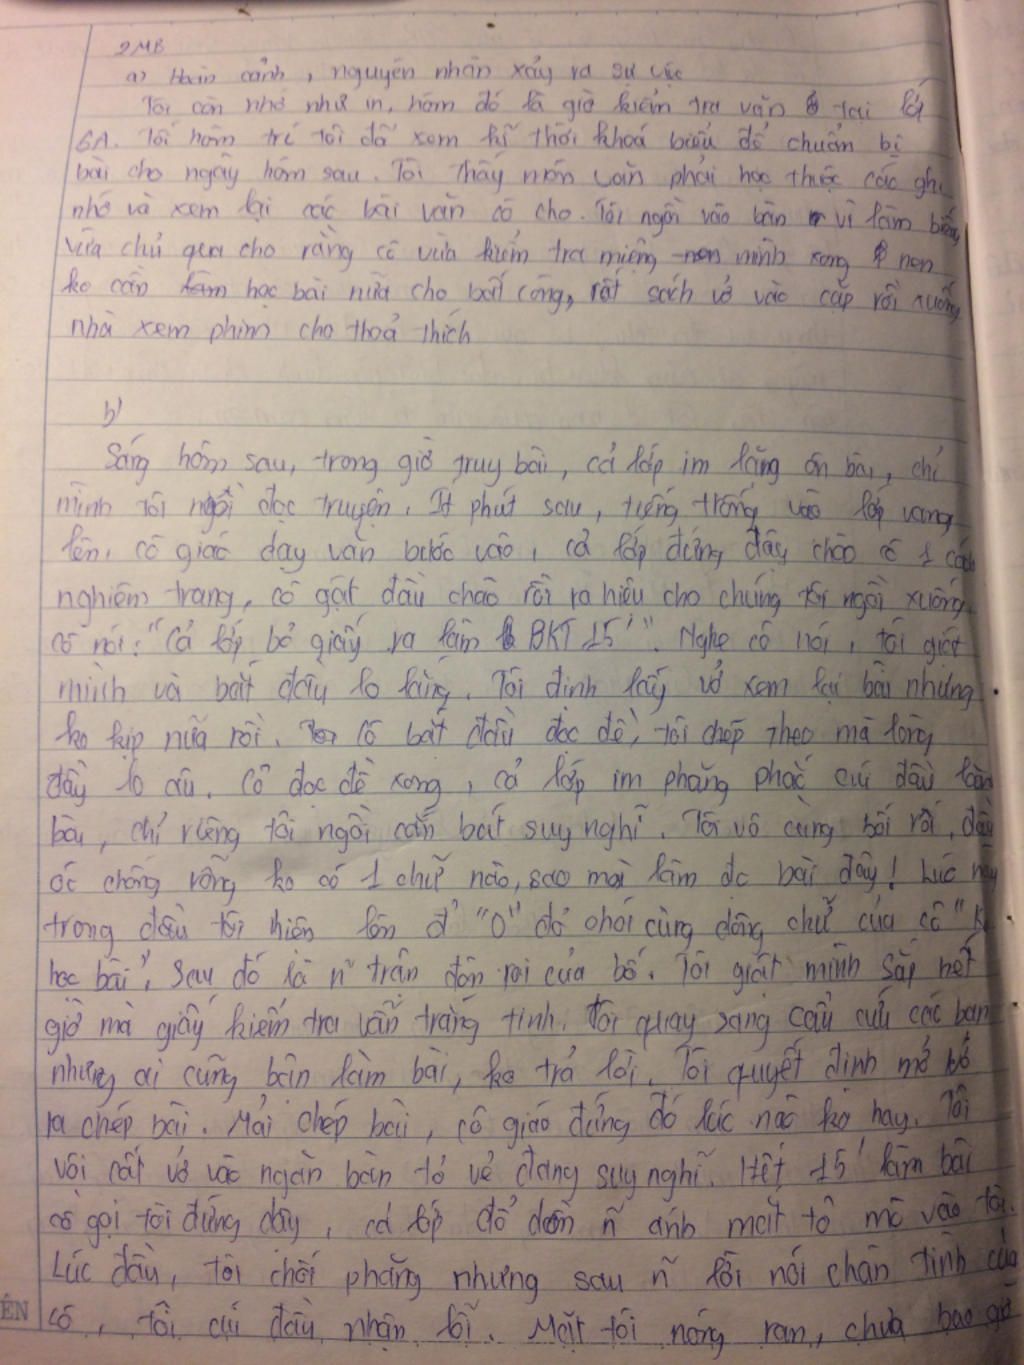 2 MB
a) Hoàn cảnh, nguyên nhân xảy ra sự việc
Tôi còn nhớ như in, hôm đó là giờ kiểm tra văn tại lớp
6A. Tối hôm trc tôi đã xem kĩ thời khoá biểu để chuẩn bị
bài cho ngày hôm sau. Tôi thấy môn văn phải học thuộc các ghi
nhớ và xem lại các bài văn cô cho. Tôi ngồi vào bàn vì làm biếng
vừa chủ quan cho rằng cô vừa kiểm tra miệng mình xong nen
ko cần học bài nữa cho bất công, rút sách vở vào cặp rồi xuống
nhà xem phim cho thoả thích
b)
Sáng hôm sau, trong giờ truy bài, cả lớp im lặng ôn bài, chỉ
mình tôi ngồi đọc truyện. Ít phút sau, tiếng trống vào lớp vang
lên. cô giáo dạy văn bước vào, cả lớp đứng dậy chào cô 1 cách
nghiêm trang, cô gật đầu chào rồi ra hiệu cho chúng tôi ngồi xuống.
cô nói: "Cả lớp bỏ giấy ra làm BKT 15'". Nghe cô nói, tôi giật
mình và bắt đầu lo lắng. Tôi định lấy vở xem lại bài nhưng
ko kịp nữa rồi. Cô bắt đầu đọc đề, tôi chép theo mà lòng
đầy lo âu. Cô đọc đề xong, cả lớp im phăng phắc cúi đầu làm
bài, chỉ riêng tôi ngồi cắn bút suy nghĩ. Tôi vô cùng bối rối, đầu
óc trống rỗng ko có 1 chữ nào, sao mà làm đc bài đây! Lúc này
trong đầu tôi hiện lên đ' "0" đỏ chói cùng dòng chữ của cô "K
học bài". Sau đó là ñ trận đòn roi của bố. Tôi giật mình sắp hết
giờ mà giấy kiểm tra vẫn trắng tinh. Tôi quay sang cầu cứu các bạn
nhưng ai cũng bận làm bài, ko trả lời. Tôi quyết định mở vở
ra chép bài. Mải chép bài, cô giáo đứng đó lúc nào ko hay. Tôi
vội cất vở vào ngăn bàn tỏ vẻ đang suy nghĩ. Hết 15' làm bài
cô gọi tôi đứng dậy, cả lớp đổ dồn ñ ánh mắt tò mò vào tôi.
Lúc đầu, tôi chối phăng nhưng sau ñ lời nói chân tình của
cô, tôi cúi đầu nhận lỗi. Mặt tôi nóng ran, chưa bao giờ
ÊN